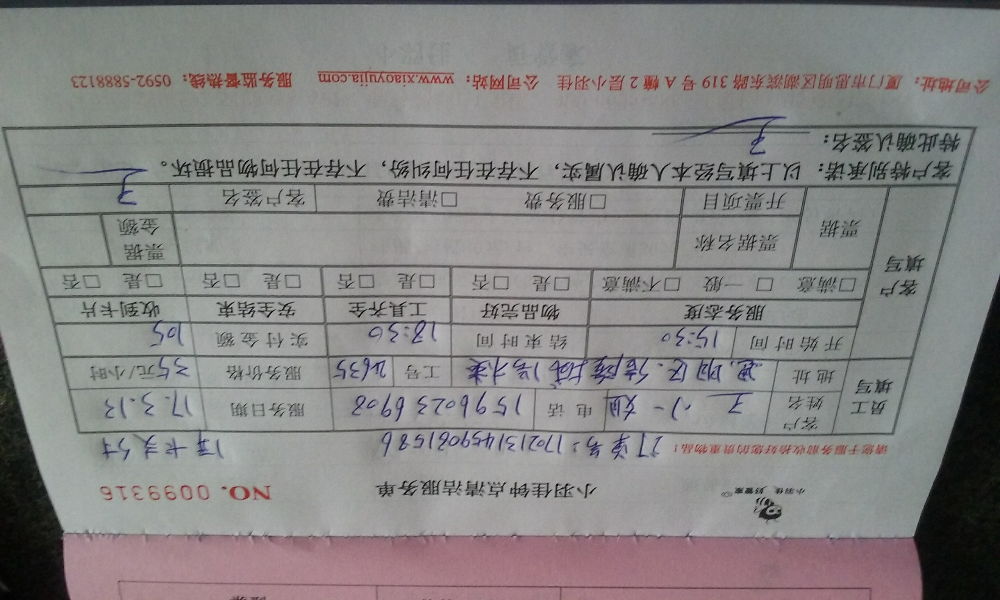 小羽佳, 好管家
小羽佳钟点清洁服务单
NO. 0099316
请您于服务前收拾好您的贵重物品！
订单号: 1702131459081586
客户姓名 王小姐 电话 15960236908 服务日期 17.3.13
员工填写 地址 工号 24635 服务价格 35元/小时
开始时间 15:30 结束时间 18:30 实付金额 105
服务态度 物品完好 工具齐全 安全结束 收到卡片
客户填写 □满意 □一般 □不满意 □是 □否 □是 □否 □是 □否 □是 □否
票据 票据名称 票据金额
开票项目 □服务费 □清洁费 客户签名 王
客户特别承诺：以上填写经本人确认属实，不存在任何纠纷，不存在任何物品损坏。
特此确认签名： 王
公司地址：厦门市思明区湖滨东路 319 号 A 幢 2 层小羽佳 公司网站：www.xiaoyujia.com 服务监督热线：0592-5888123